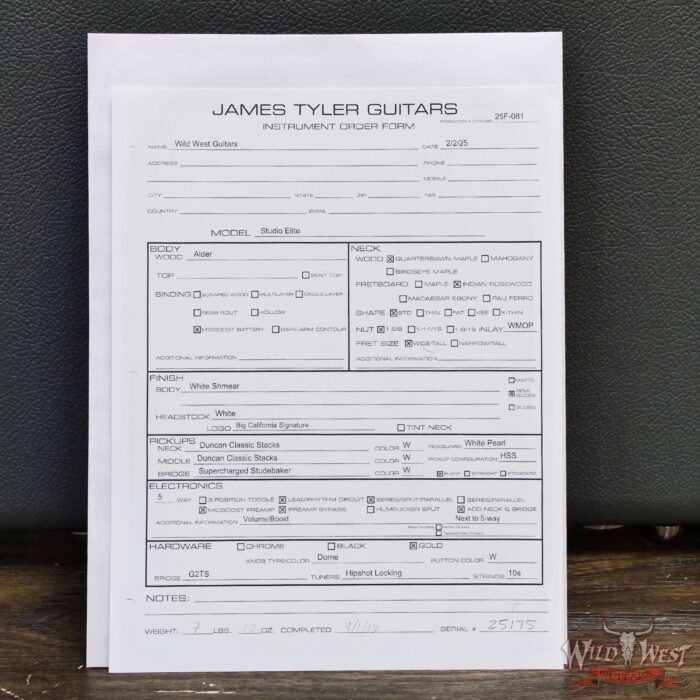 JAMES TYLER GUITARS
INSTRUMENT ORDER FORM
25F-081
NAME Wild West Guitars DATE 2/2/25
ADDRESS PHONE
MOBILE
CITY STATE ZIP FAX
COUNTRY EMAIL
MODEL Studio Elite
BODY
WOOD Alder
TOP BENT TOP
BINDING SCRAPED WOOD MULTILAYER SINGLE-LAYER
REAR ROUT HOLLOW
MIDBOOST BATTERY BARE-ARM CONTOUR
ADDITIONAL INFORMATION
NECK
WOOD QUARTERSAWN MAPLE MAHOGANY
BIRDSEYE MAPLE
FRETBOARD MAPLE INDIAN ROSEWOOD
MACASSAR EBONY PAU FERRO
SHAPE STD THIN FAT VEE X-THIN
NUT 1-5/8 1-11/16 INLAY WMOP
FRET SIZE WIDE/TALL NARROW/TALL
ADDITIONAL INFORMATION
FINISH
BODY White Shmear
MATTE
SEMI GLOSS
GLOSS
HEADSTOCK White
LOGO Big California Signature TINT NECK
PICKUPS
NECK Duncan Classic Stacks COLOR W PICKGUARD White Pearl
MIDDLE Duncan Classic Stacks COLOR W PICKUP CONFIGURATION HSS
BRIDGE Supercharged Studebaker COLOR W SLANT STRAIGHT STANDARD
ELECTRONICS
5 WAY 3-POSITION TOGGLE LEAD/RHYTHM CIRCUIT SERIES/SPLIT/PARALLEL SERIES/PARALLEL
MIDBOOST PREAMP PREAMP BYPASS HUMBUCKER SPLIT ADD NECK & BRIDGE
ADDITIONAL INFORMATION Volume/Boost Next to 5-way
HARDWARE CHROME BLACK GOLD
KNOB TYPE/COLOR Dome BUTTON COLOR W
BRIDGE G2TS TUNERS Hipshot Locking STRINGS 10s
NOTES:
WEIGHT: 7 LBS. 10 OZ. COMPLETED SERIAL # 25175
WILD WEST
GUITARS